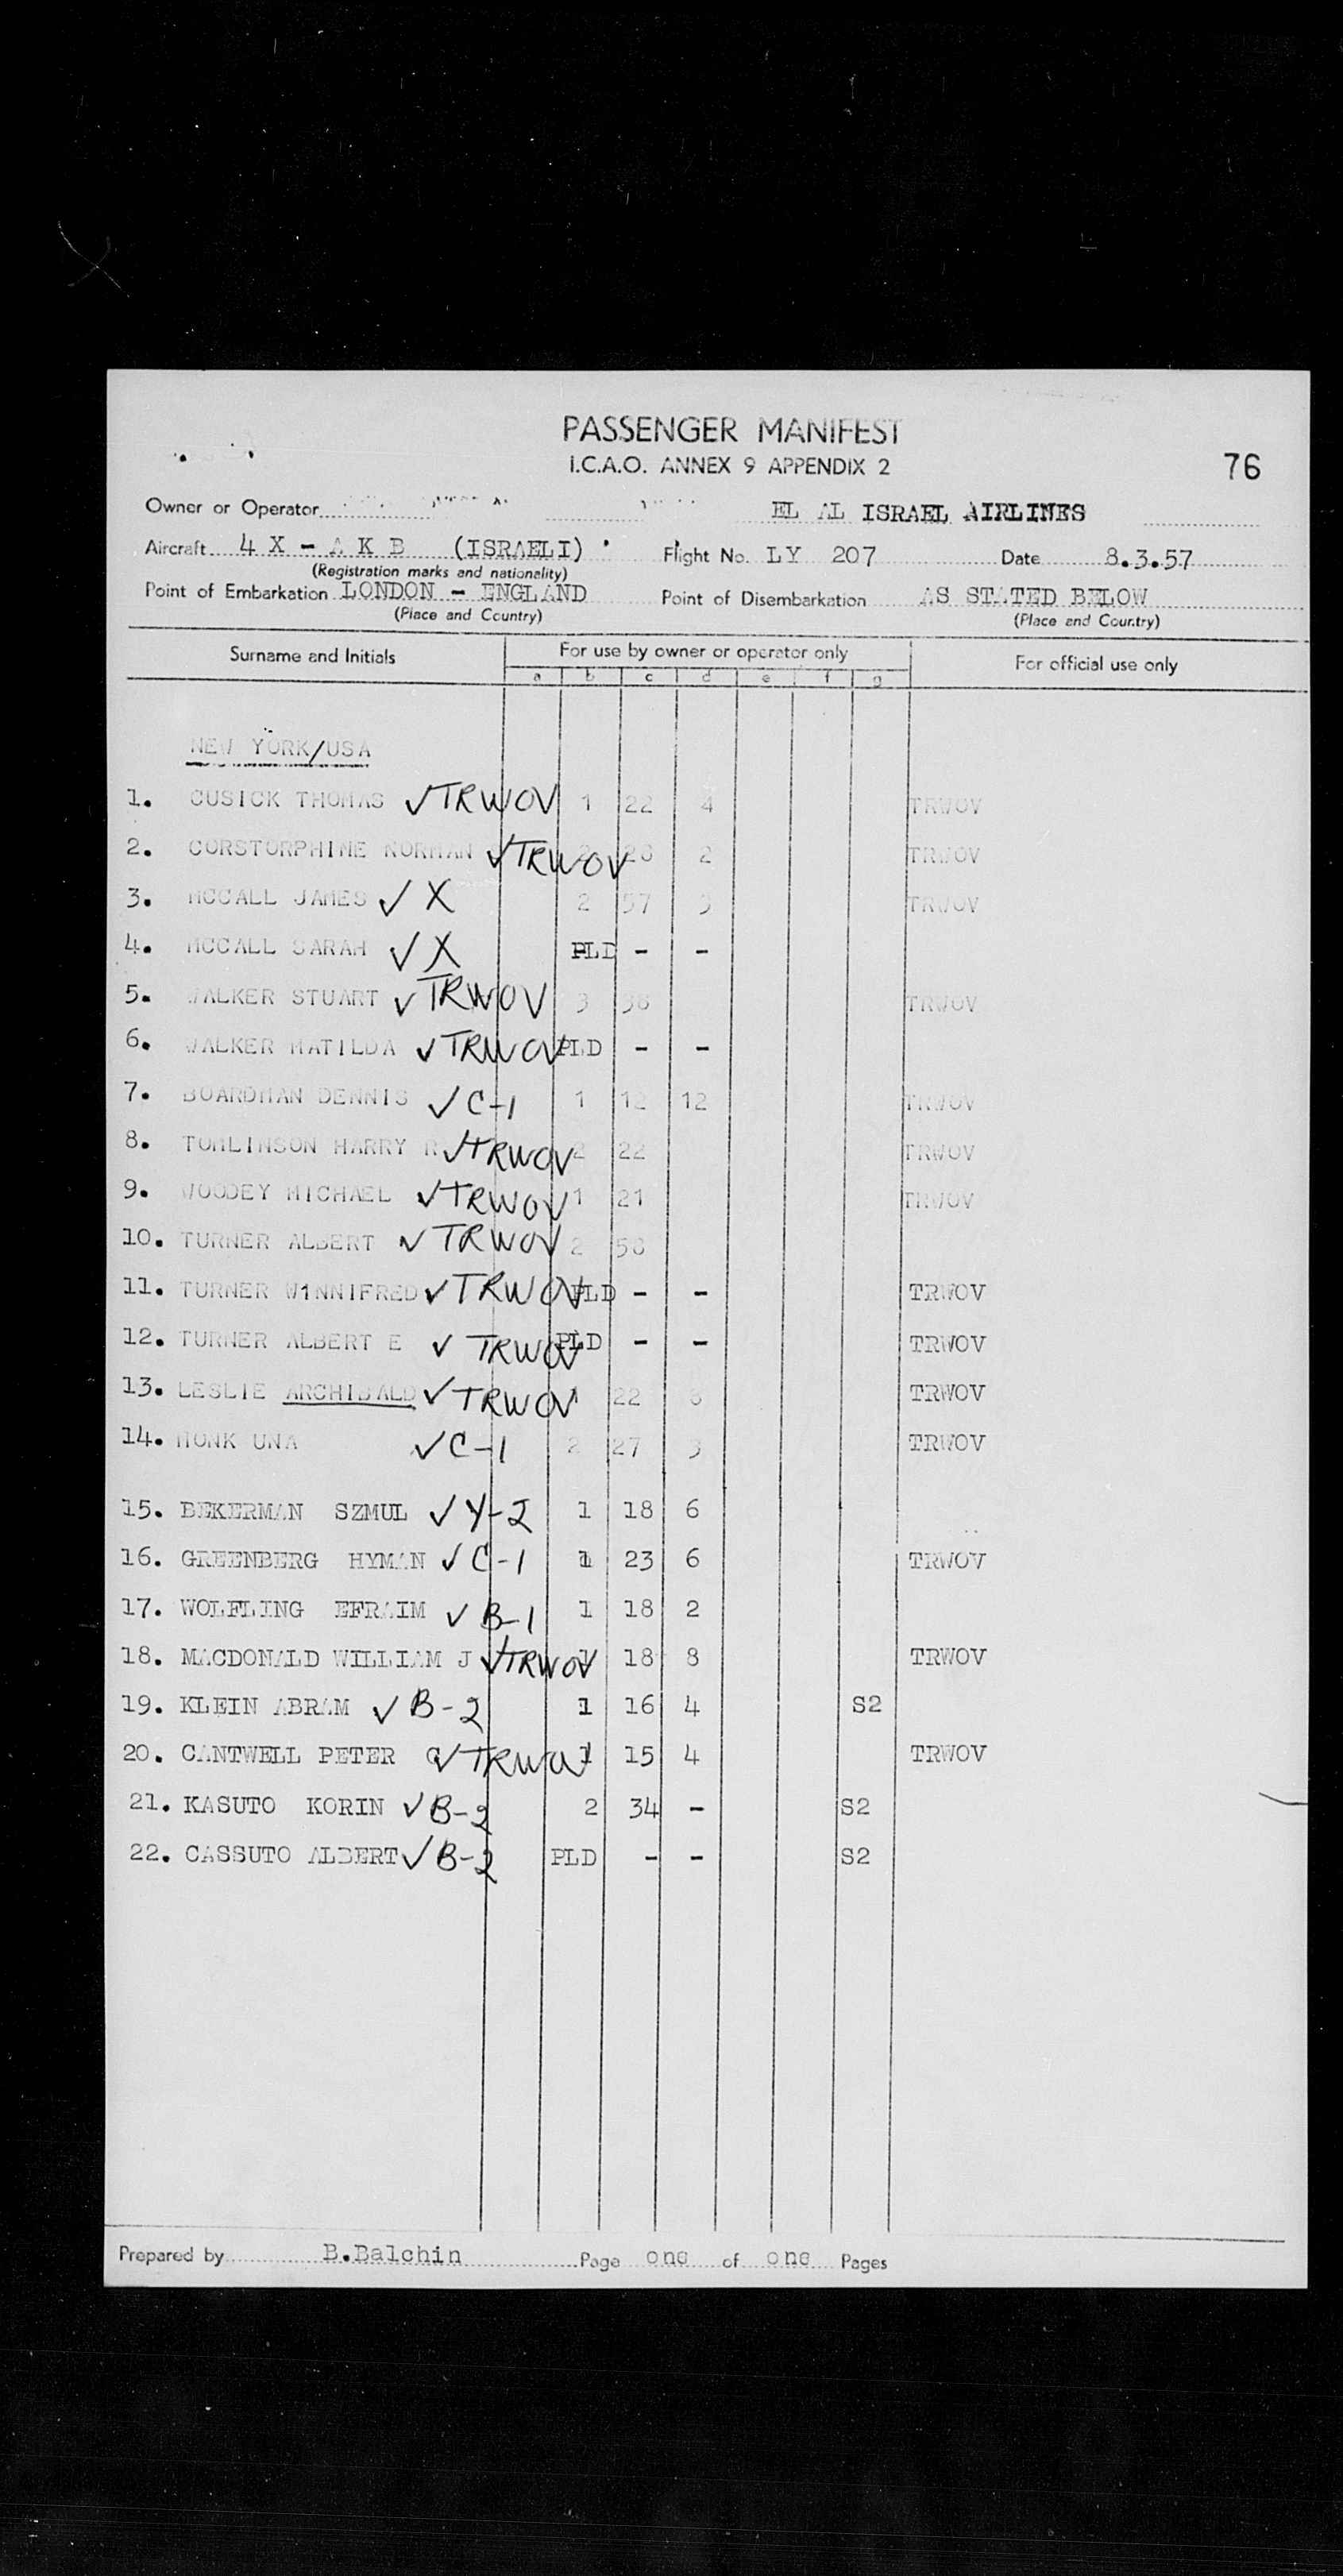 PASSENGER MANIFEST
I.C.A.O. ANNEX 9 APPENDIX 2
76
Owner or Operator EL AL ISRAEL AIRLINES
Aircraft 4 X - A K B (ISRAELI) Flight No. LY 207 Date 8.3.57
(Registration marks and nationality)
Point of Embarkation LONDON - ENGLAND Point of Disembarkation AS STATED BELOW
(Place and Country) (Place and Country)
Surname and Initials For use by owner or operator only For official use only
a b c d e f g
NEW YORK/USA
1. CUSICK THOMAS ✓ TRWOV 1 22 4 TRWOV
2. CORSTORPHINE NORMAN ✓ TRWOV 2 26 2 TRWOV
3. MCCALL JAMES ✓ X 2 57 3 TRWOV
4. MCCALL SARAH ✓ X PLD - -
5. WALKER STUART ✓ TRWOV 3 38 TRWOV
6. WALKER MATILDA ✓ TRWOV PLD - -
7. BOARDMAN DENNIS ✓ C-1 1 12 12 TRWOV
8. TOMLINSON HARRY R ✓ TRWOV 2 22 TRWOV
9. WOODEY MICHAEL ✓ TRWOV 1 21 TRWOV
10. TURNER ALBERT ✓ TRWOV 2 58
11. TURNER WINNIFRED ✓ TRWOV PLD - - TRWOV
12. TURNER ALBERT E ✓ TRWOV PLD - - TRWOV
13. LESLIE ARCHIBALD ✓ TRWOV 1 22 8 TRWOV
14. MONK UNA ✓ C-1 2 27 3 TRWOV
15. BEKERMAN SZMUL ✓ Y-2 1 18 6
16. GREENBERG HYMAN ✓ C-1 1 23 6 TRWOV
17. WOLFLING EFRAIM ✓ B-1 1 18 2
18. MACDONALD WILLIAM J ✓ TRWOV 1 18 8 TRWOV
19. KLEIN ABRAM ✓ B-2 1 16 4 S2
20. CANTWELL PETER C ✓ TRWOV 1 15 4 TRWOV
21. KASUTO KORIN ✓ B-2 2 34 - S2
22. CASSUTO ALBERT ✓ B-2 PLD - - S2
Prepared by B.Balchin Page one of one Pages